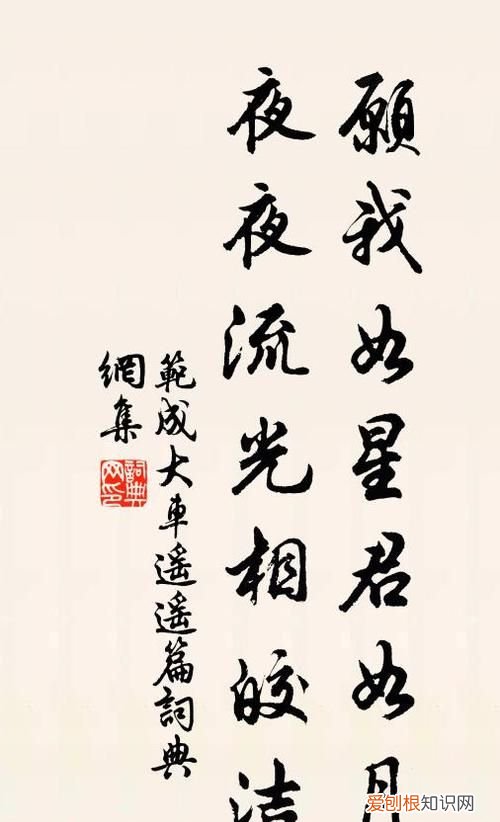 願我如星君如月
夜夜流光相皎洁
範成大車遥遥篇詞典
網集
詞典网印
爱刨根知识网